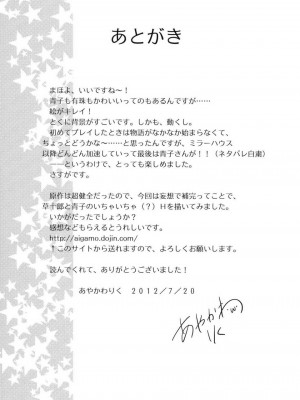 あとがき
まほよ、いいですね～！
青子も有珠もかわいいってのもあるんですが……
絵がキレイ！
とくに背景がすごいです。しかも、動くし。
初めてプレイしたときは物語がなかなか始まらなくて、
ちょっとどうかな～…と思ったんですが、ミラーハウス
以降どんどん加速していって最後は青子さんが！！（ネタバレ自粛）
――というわけで、とっても楽しめました。
さすがです。
原作は超健全だったので、今回は妄想で補完ってことで、
草十郎と青子のいちゃいちゃ（？）Ｈを描いてみました。
いかがだったでしょうか？
感想などもらえるとうれしいです。
http://aigamo.dojin.com/
↑このサイトから送れますので、よろしくお願いします。
読んでくれて、ありがとうございました！
あやかわりく　２０１２／７／２０
あやかわ
りく